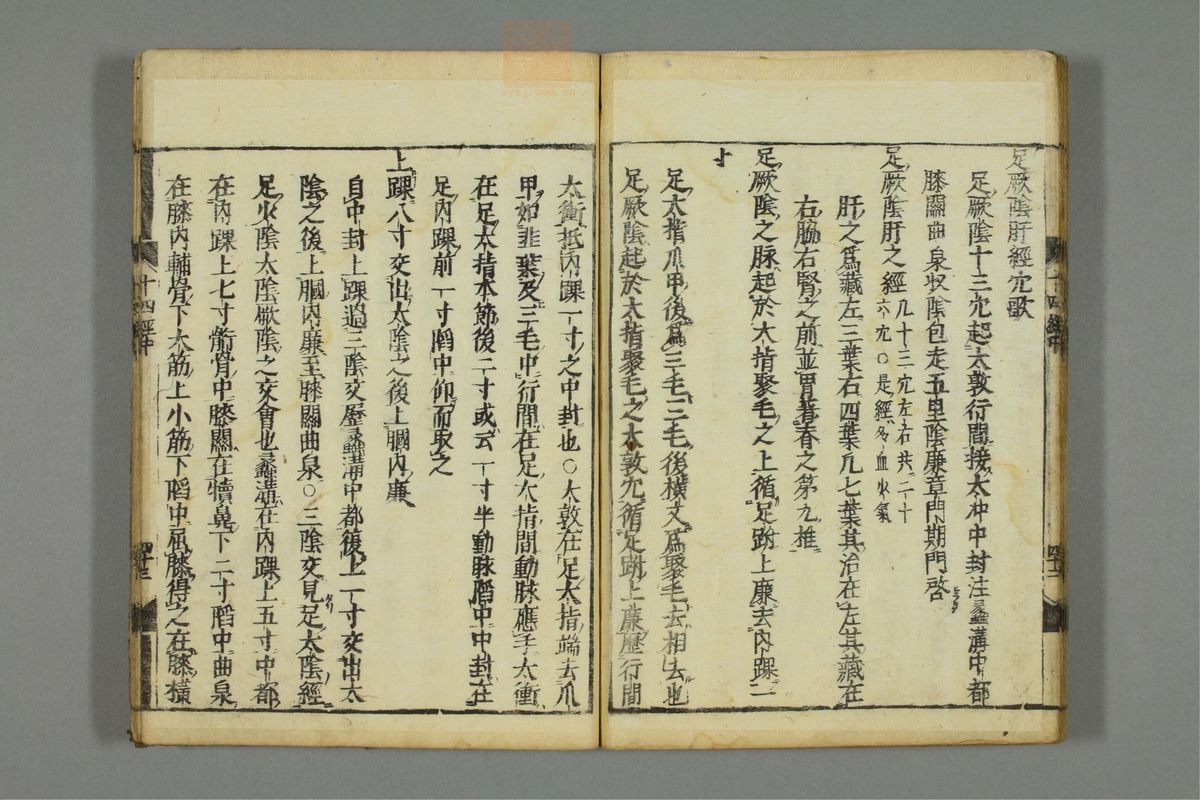 足厥陰肝經穴歌
足厥陰十三穴起大敦行間接太冲中封注蠡溝中都
膝關曲泉収陰包走五里陰廉章門期門啓
足厥陰肝之經
凡十三穴左右共二十
六穴○是經多血少氣
肝之爲藏左三葉右四葉凡七葉其治在左其藏在
右脇右腎之前並胃著脊之第九椎
足厥陰之脉起於大指聚毛之上循足跗上廉去内踝一
寸
足大指爪甲後爲三毛三毛後橫文爲聚毛去相去也
足厥陰起於大指聚毛之大敦穴循足跗上廉歷行間
太衝抵内踝一寸之中封也○大敦在足大指端去爪
甲如韭葉及三毛中行間在足大指間動脉應手太衝
在足大指本節後二寸或云一寸半動脉陷中中封在
足内踝前一寸陷中仰而取之
上踝八寸交出太陰之後上膕内廉
自中封上踝過三陰交歷蠡溝中都復上一寸交出太
陰之後上膕内廉至膝關曲泉○三陰交見足太陰經
足少陰太陰厥陰之交會也蠡溝在内踝上五寸中都
在内踝上七寸䯒骨中膝關在犢鼻下二寸陷中曲泉
在膝内輔骨下大筋上小筋下陷中屈膝得之在膝橫
十四經中
四十二
十四經中
四十三
zysj.com.cn